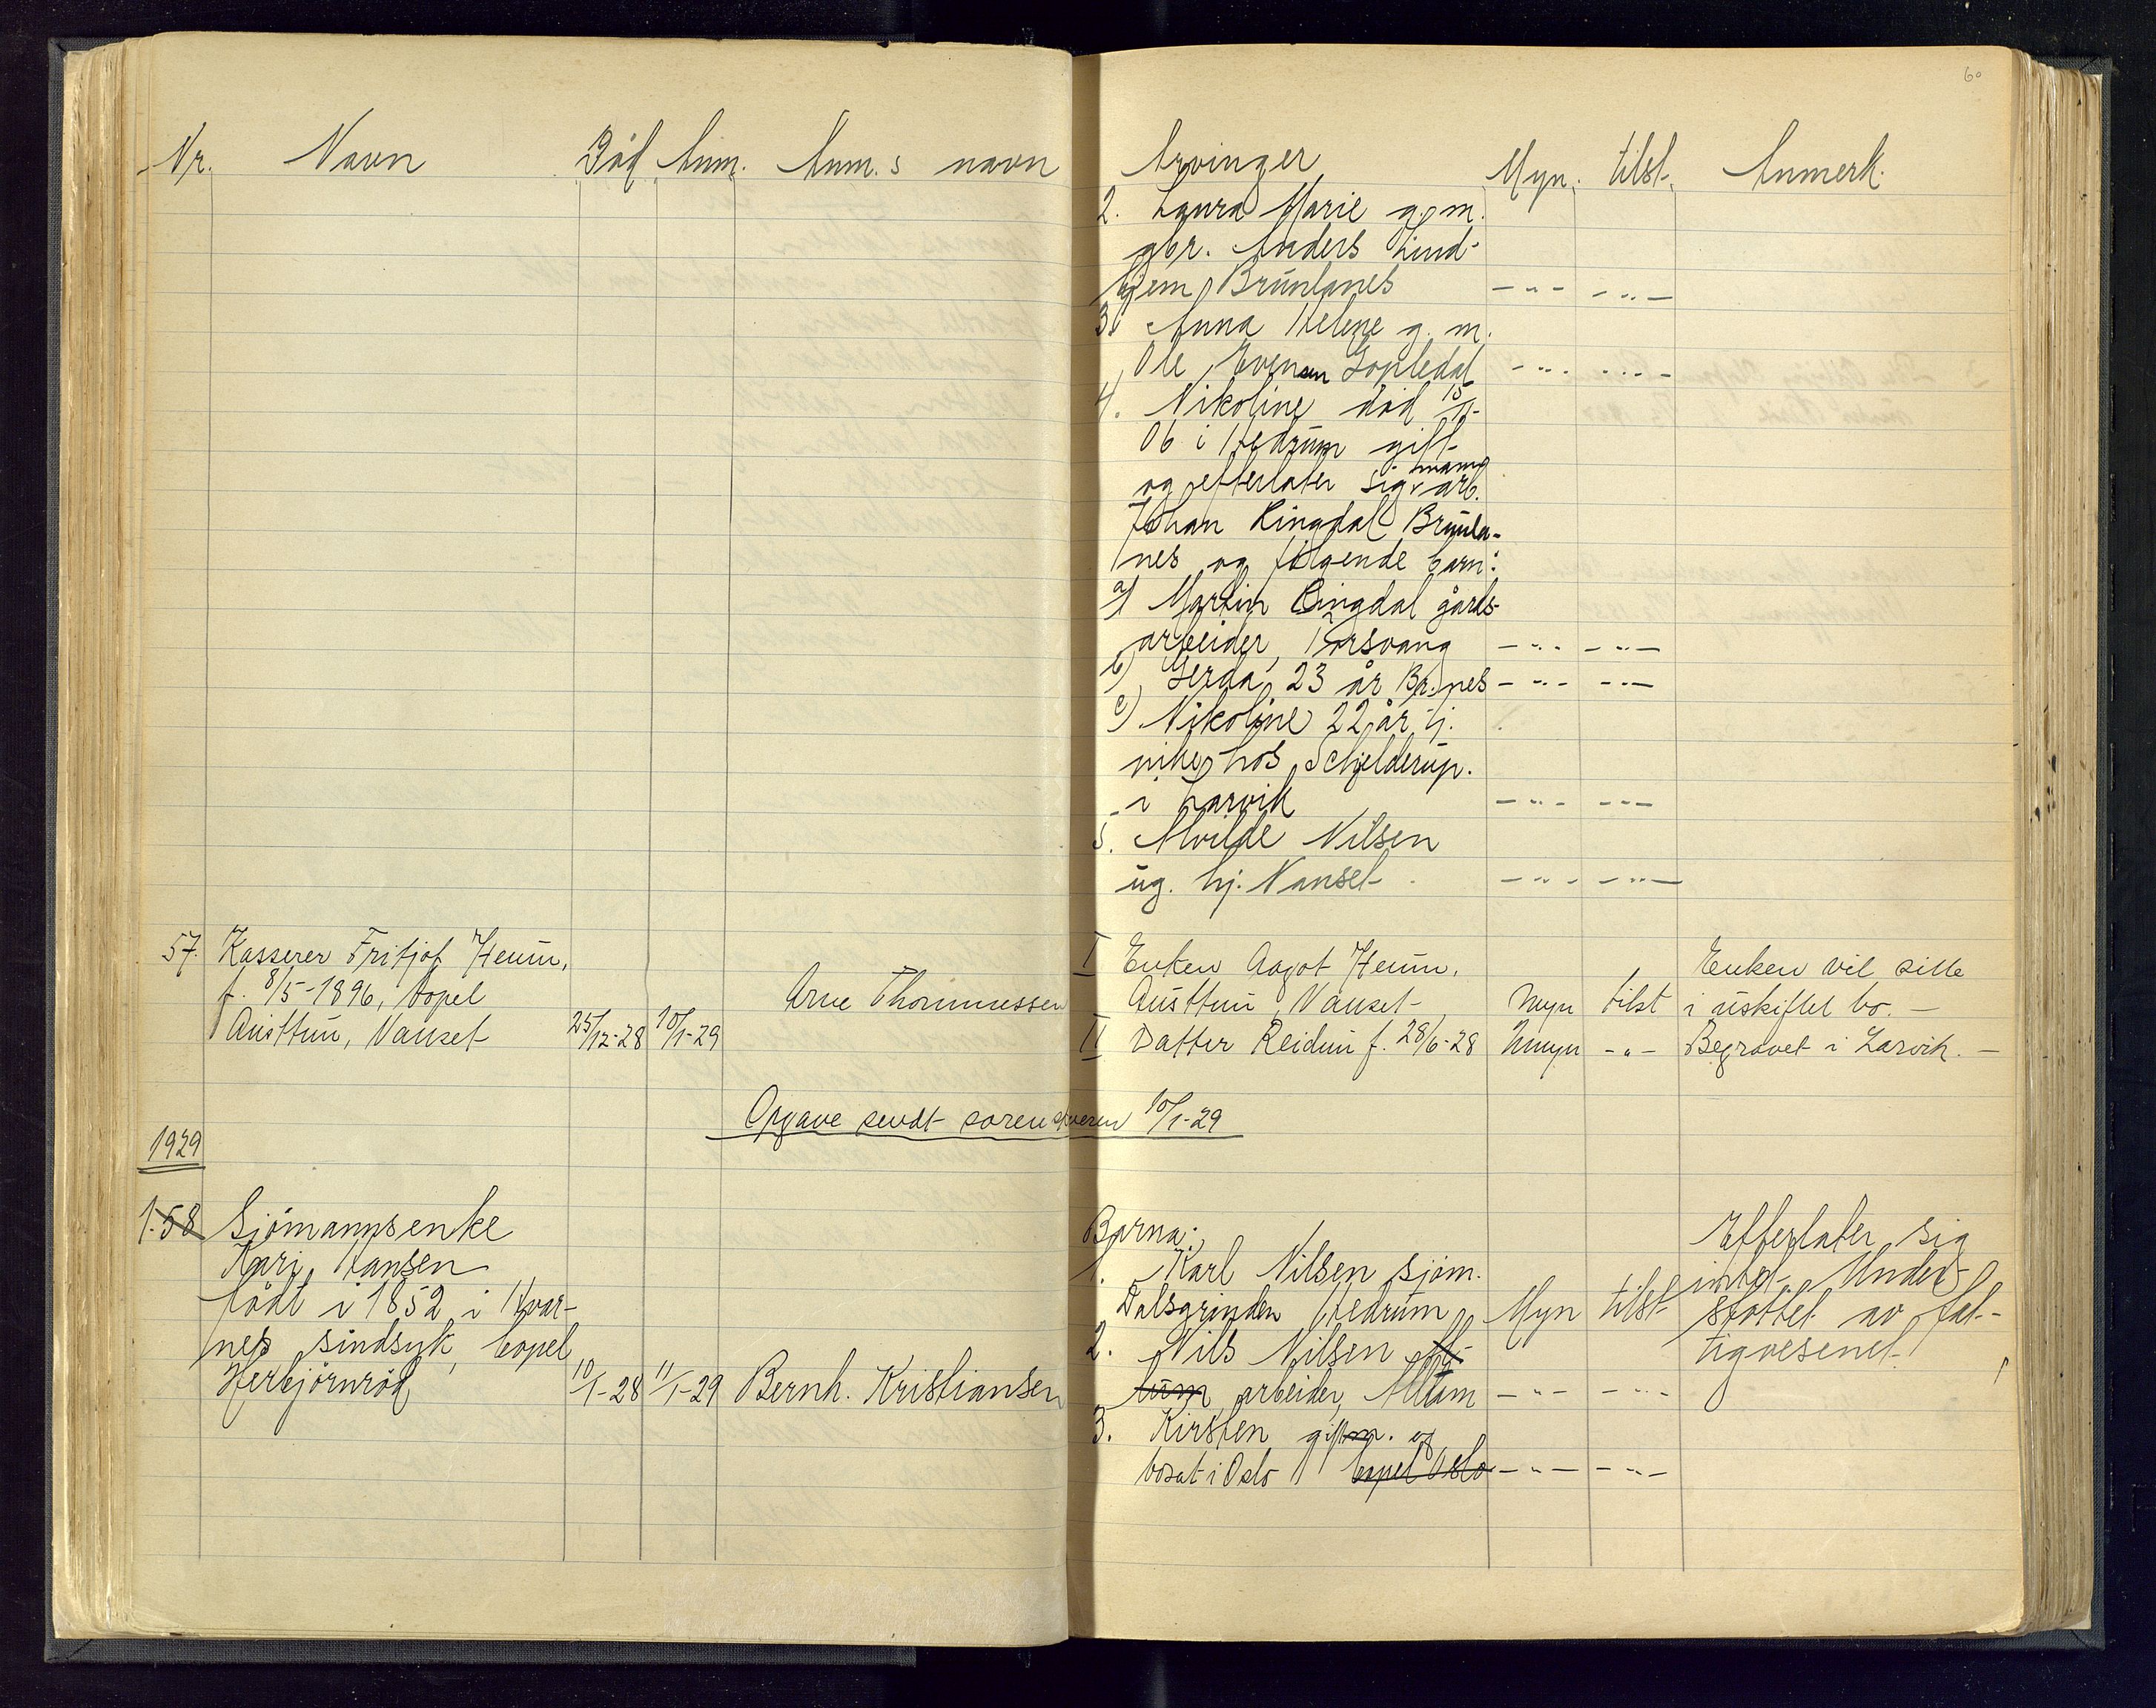 60
Nr. Navn Död Anm. Anm.s navn
Arvinger Myn. tilst. Anmerk.
2. Laura Marie g. m.
gbr. Anders Lind-
hjem, Brunlanes -"- -"-
3. Anna Helene g. m.
Ole Evensen Gopledal -"- -"-
4. Nikoline död 15/11-
06 i Hedrum gift
og efterlater sig mann
arb.
Johan Ringdal Brunla-
nes og følgende barn:
a) Martin Ringdal gårds-
arbeider, Korsvang -"- -"-
b) Gerda, 23 år Br.nes -"- -"-
c) Nikoline 22 år tj.
pike hos Schjelderup.
i Larvik -"- -"-
5. Alvilde Nilsen
ug. hj. Nanset -"- -"-
57. Kasserer Fritjof Heum,
f. 8/5-1896, bopel
Austtun, Nanset 25/12-28 10/1-29
Arve Thommessen
I Enken Aagot Heum, Enken vil sitte
Austtun, Nanset Myn tilst i uskiftet bo. -
II Datter Reidun f. 28/6-28 Umyn -"- Begravet i Larvik. -
Opgave sendt sorenskriveren 10/1-29
1929
1. 58 Sjömannsenke
Kari Hansen
födt i 1852 i Hvar-
nes sindsyk, bopel
Herbjörnröd 10/1-28 11/1-29 Bernh. Kristiansen
Barna: Efterlater sig
1. Karl Nilsen sjöm. intet. Under-
Dalsgrinden Hedrum Myn tilst støttet av fat-
2. Nils Nilsen tigvesenet.
arbeider, -"- -"-
3. Kirsten gift m. og
bosat i Oslo bopel Oslo -"- -"-